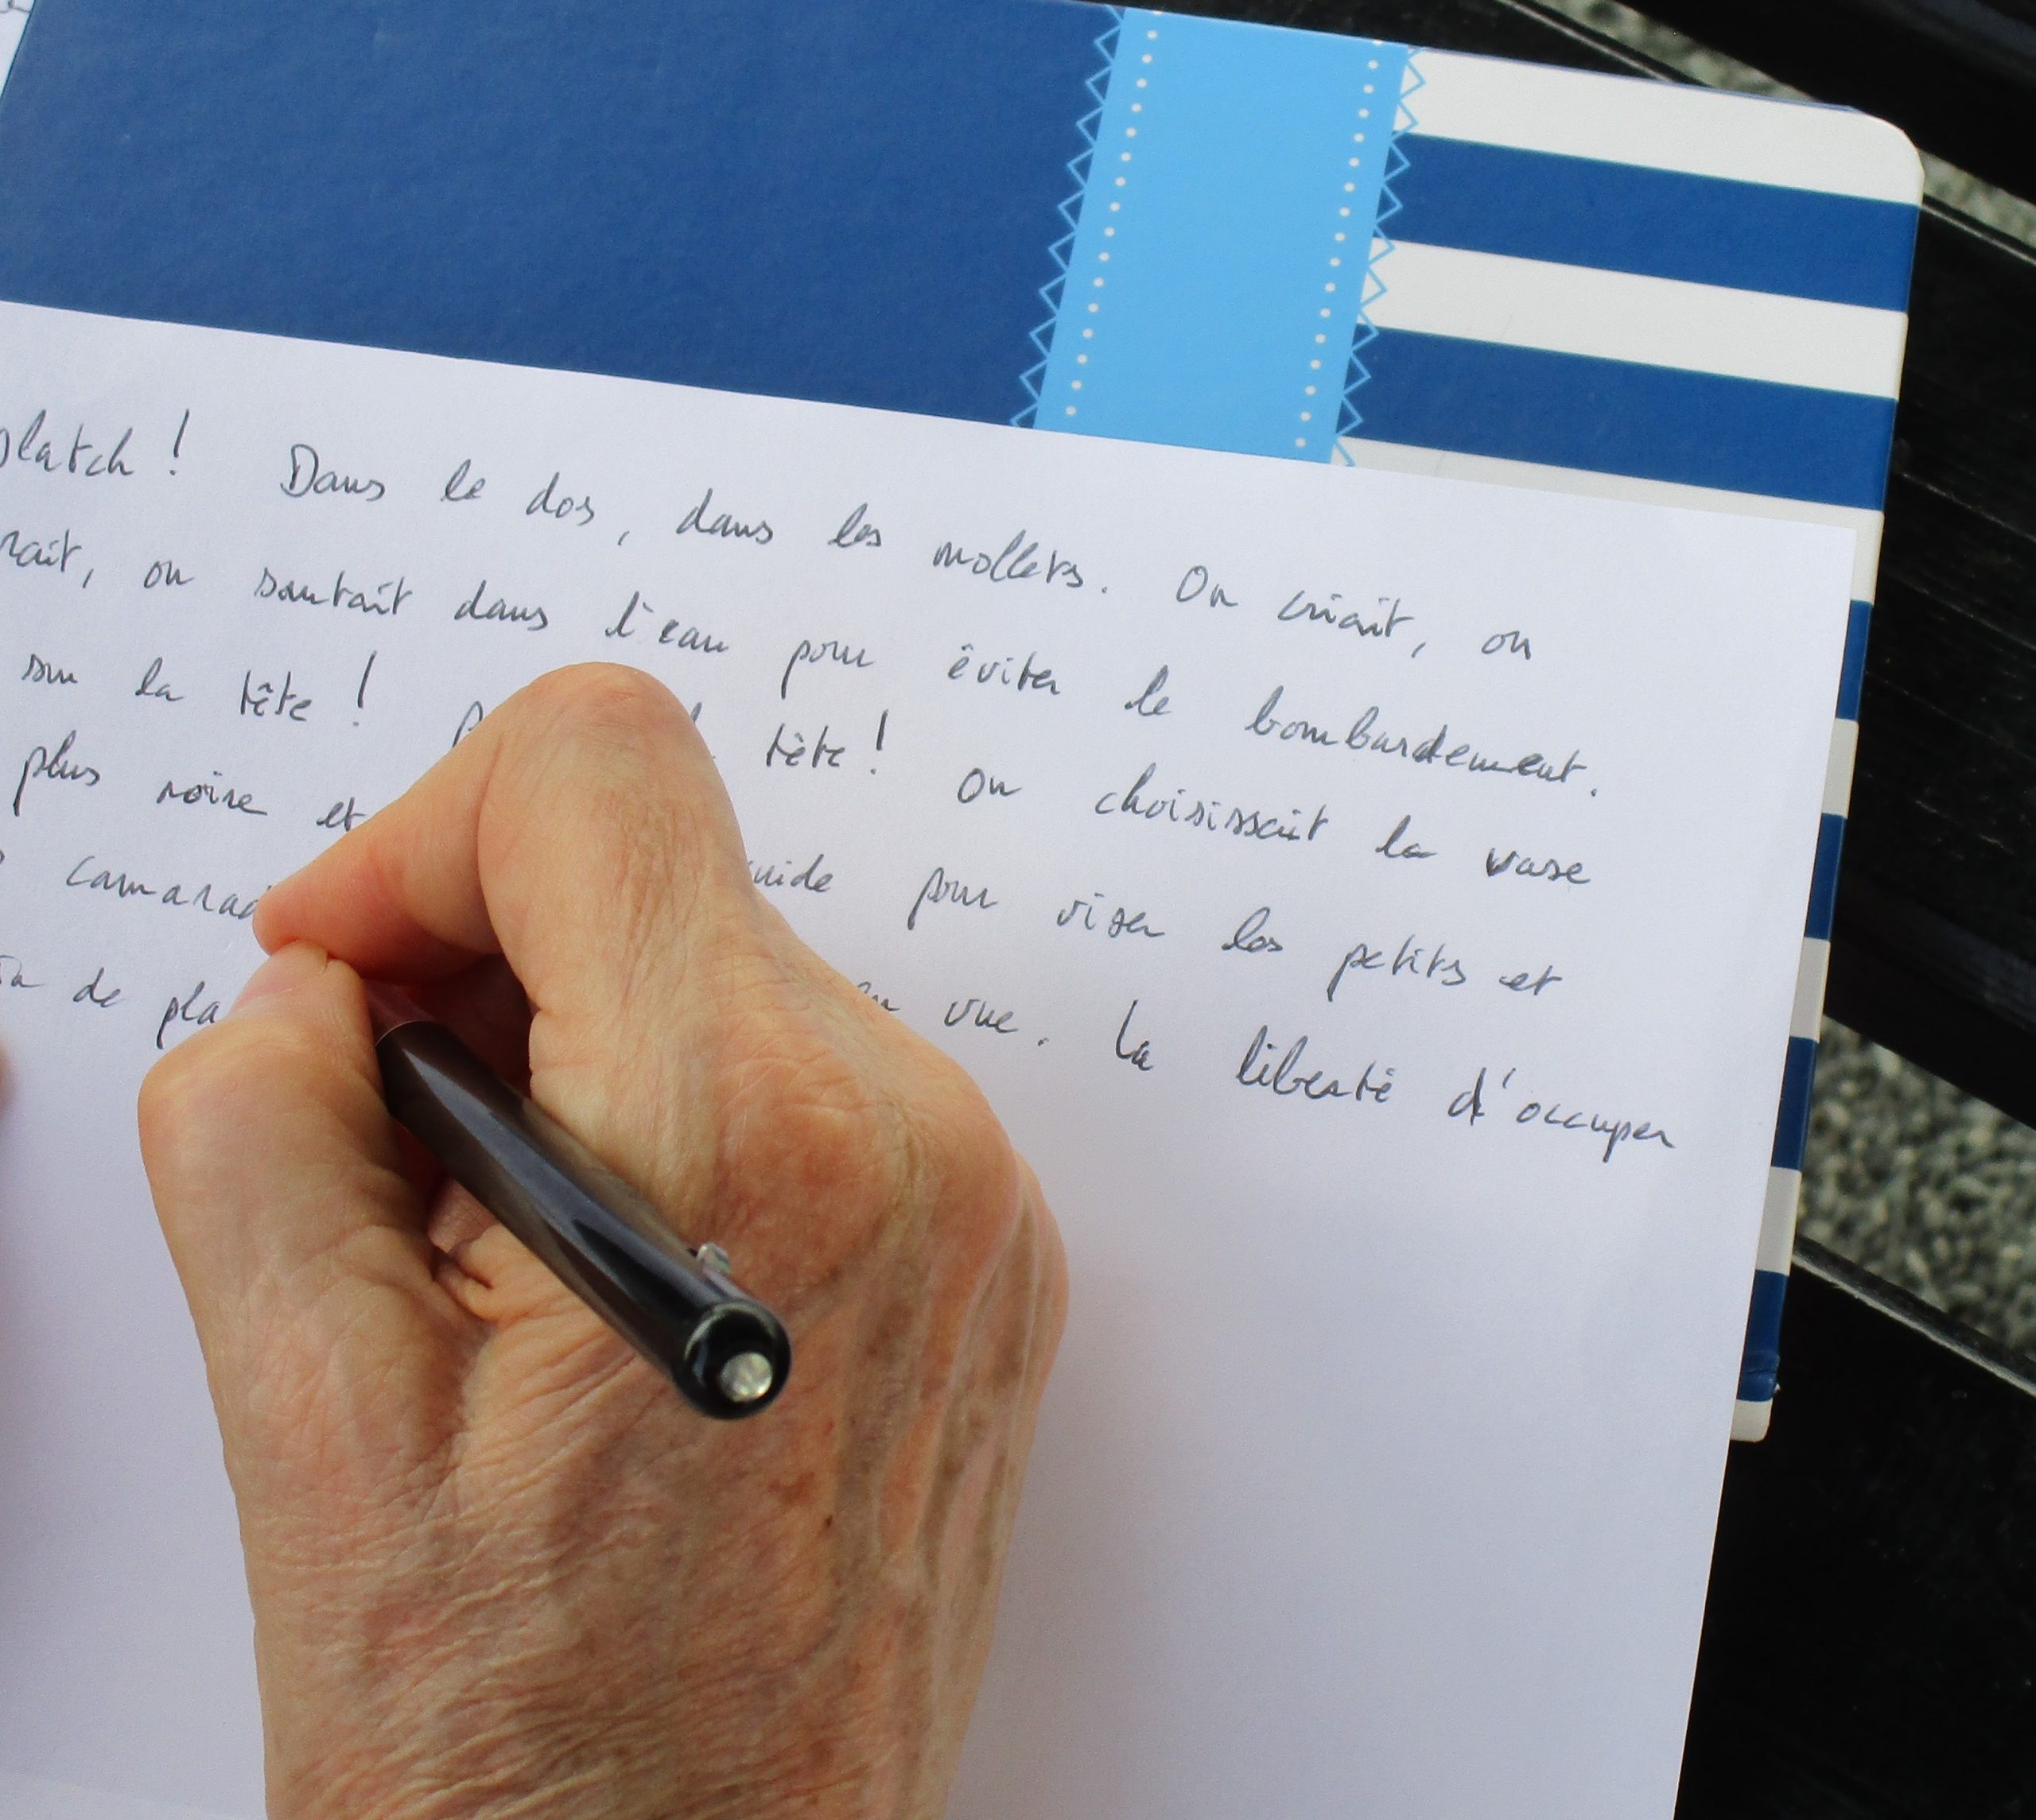 platch ! Dans le dos, dans les mollets. On criait, on
rait, on sautait dans l'eau pour éviter le bombardement.
sur la tête ! tête ! On choisissait la vase
plus noire et uide pour viser les petits et
camarad en vue. La liberté d'occuper
de pla